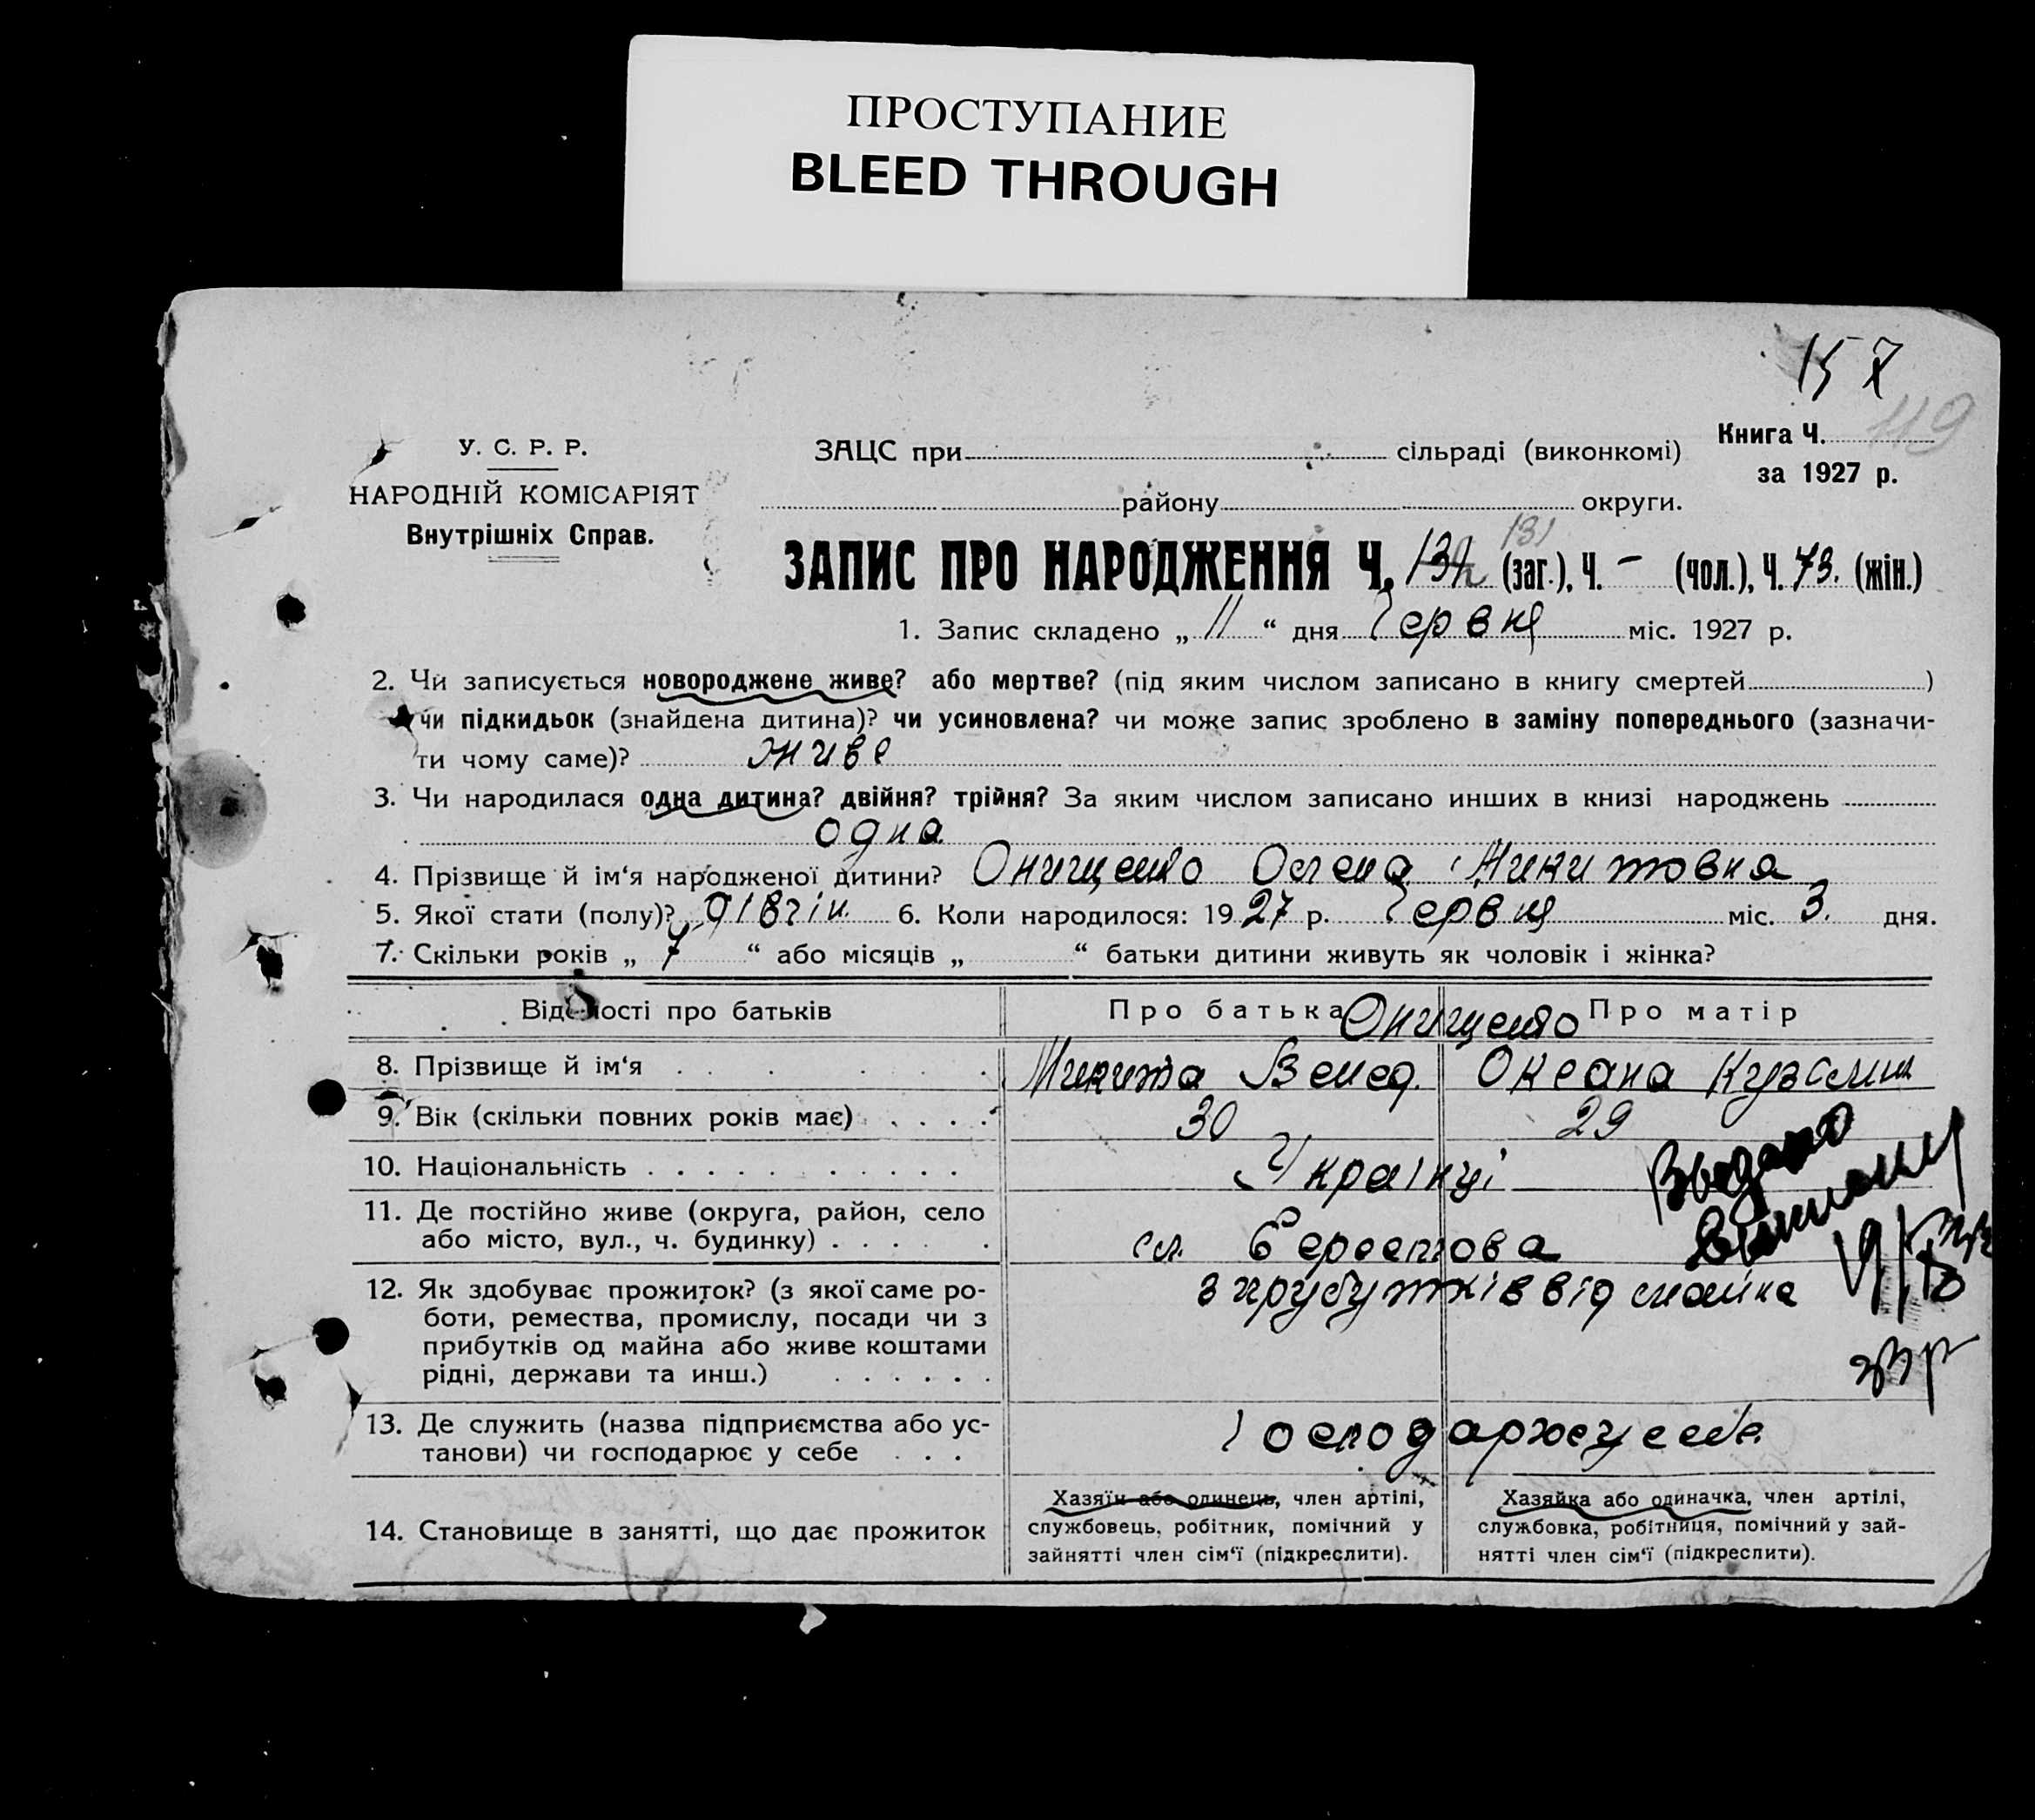 ПРОСТУПАНИЕ
BLEED THROUGH
157
119
У. С. Р. Р.
НАРОДНІЙ КОМІСАРІЯТ
Внутрішніх Справ.
ЗАЦС при сільраді (виконкомі)
Книга Ч.
за 1927 р.
району округи.
131
ЗАПИС ПРО НАРОДЖЕННЯ Ч. (заг.), Ч. – (чол.), Ч. 73. (жін.)
1. Запис складено „ 11 “ дня Червня міс. 1927 р.
2. Чи записується новороджене живе? або мертве? (під яким числом записано в книгу смертей )
чи підкидьок (знайдена дитина)? чи усиновлена? чи може запис зроблено в заміну попереднього (зазначи-
ти чому саме)? живе
3. Чи народилася одна дитина? двійня? трійня? За яким числом записано инших в книзі народжень
одна
4. Прізвище й ім‘я народженої дитини? Онищенко Олена Микитовна
5. Якої стати (полу)? дівчін. 6. Коли народилося: 1927 р. Червня міс. 3. дня.
7. Скільки років „ 7 “ або місяців „ “ батьки дитини живуть як чоловік і жінка?
Відомості про батьків Про батька Онищенко Про матір
8. Прізвище й ім‘я Микита Венед. Оксана Кузьмин
9. Вік (скільки повних років має) 30 29
10. Національність Українці
11. Де постійно живе (округа, район, село
або місто, вул., ч. будинку) сл. Берестова
12. Як здобуває прожиток? (з якої саме ро-
боти, ремества, промислу, посади чи з
прибутків од майна або живе коштами
рідні, держави та инш.)
з прубутків від майна
Видано
13. Де служить (назва підприємства або ус-
танови) чи господарює у себе
Господарює у себе
14. Становище в занятті, що дає прожиток
Хазяїн або одинець, член артілі,
службовець, робітник, помічний у
зайнятті член сім‘ї (підкреслити).
Хазяйка або одиначка, член артілі,
службовка, робітниця, помічний у зай-
нятті член сім‘ї (підкреслити).